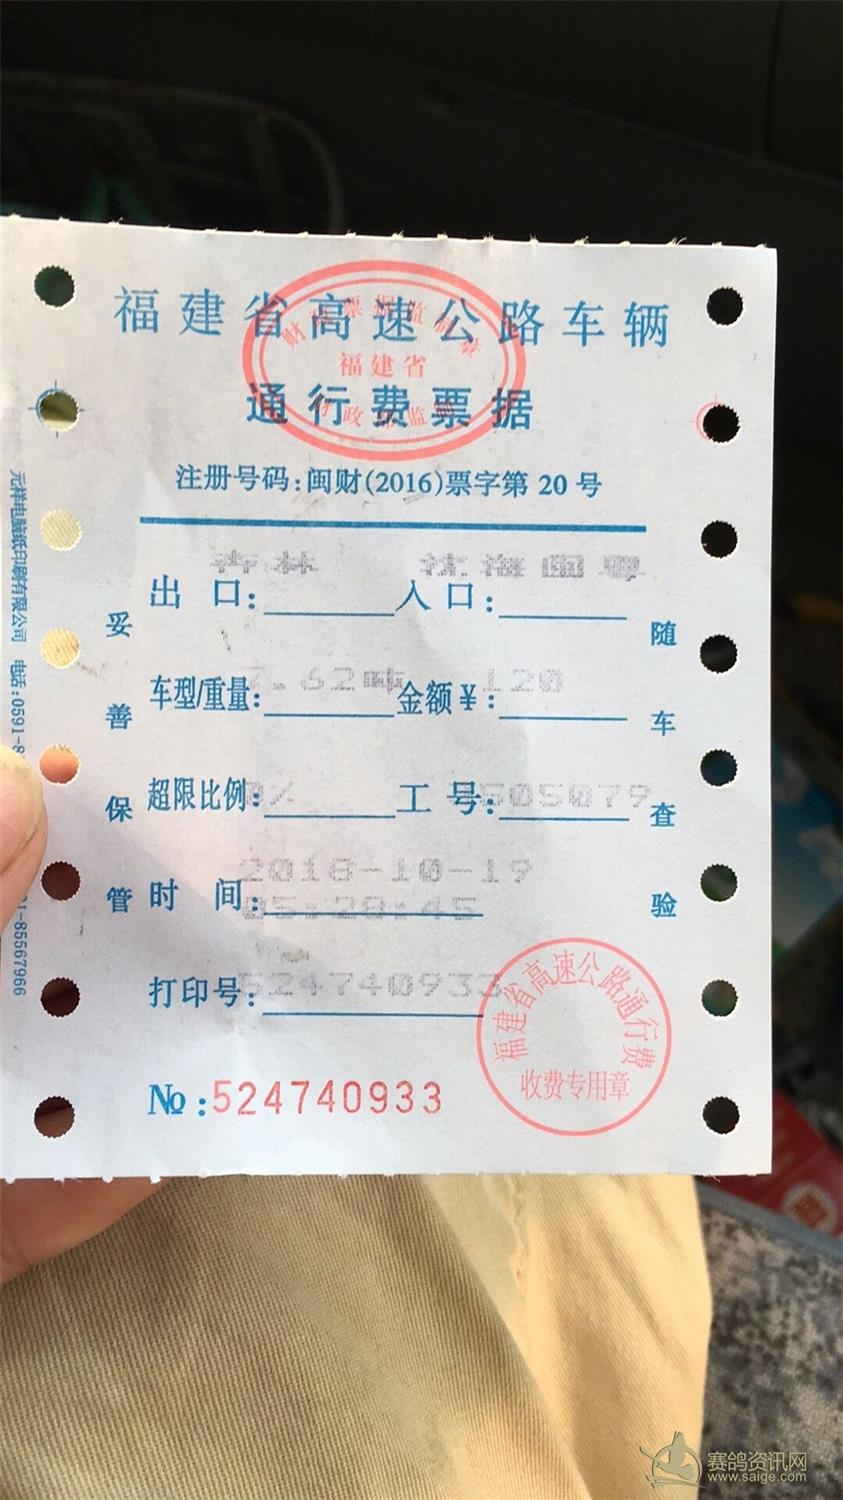 福建省高速公路车辆
通行费票据
财政票据监制章
福建省
财政部监制
注册号码:闽财(2016)票字第 20 号
杏林 沈海闽粤
出 口: 入 口:
7.62吨 120
车型/重量: 金额¥:
超限比例:0% 工 号:505079
2018-10-19
时 间:05:28:45
打印号:524740933
№:524740933
妥善保管
随车查验
福建省高速公路通行费
收费专用章
元祥电脑纸印刷有限公司 电话:0591-8
-85567966
赛鸽资讯网
www.saige.com